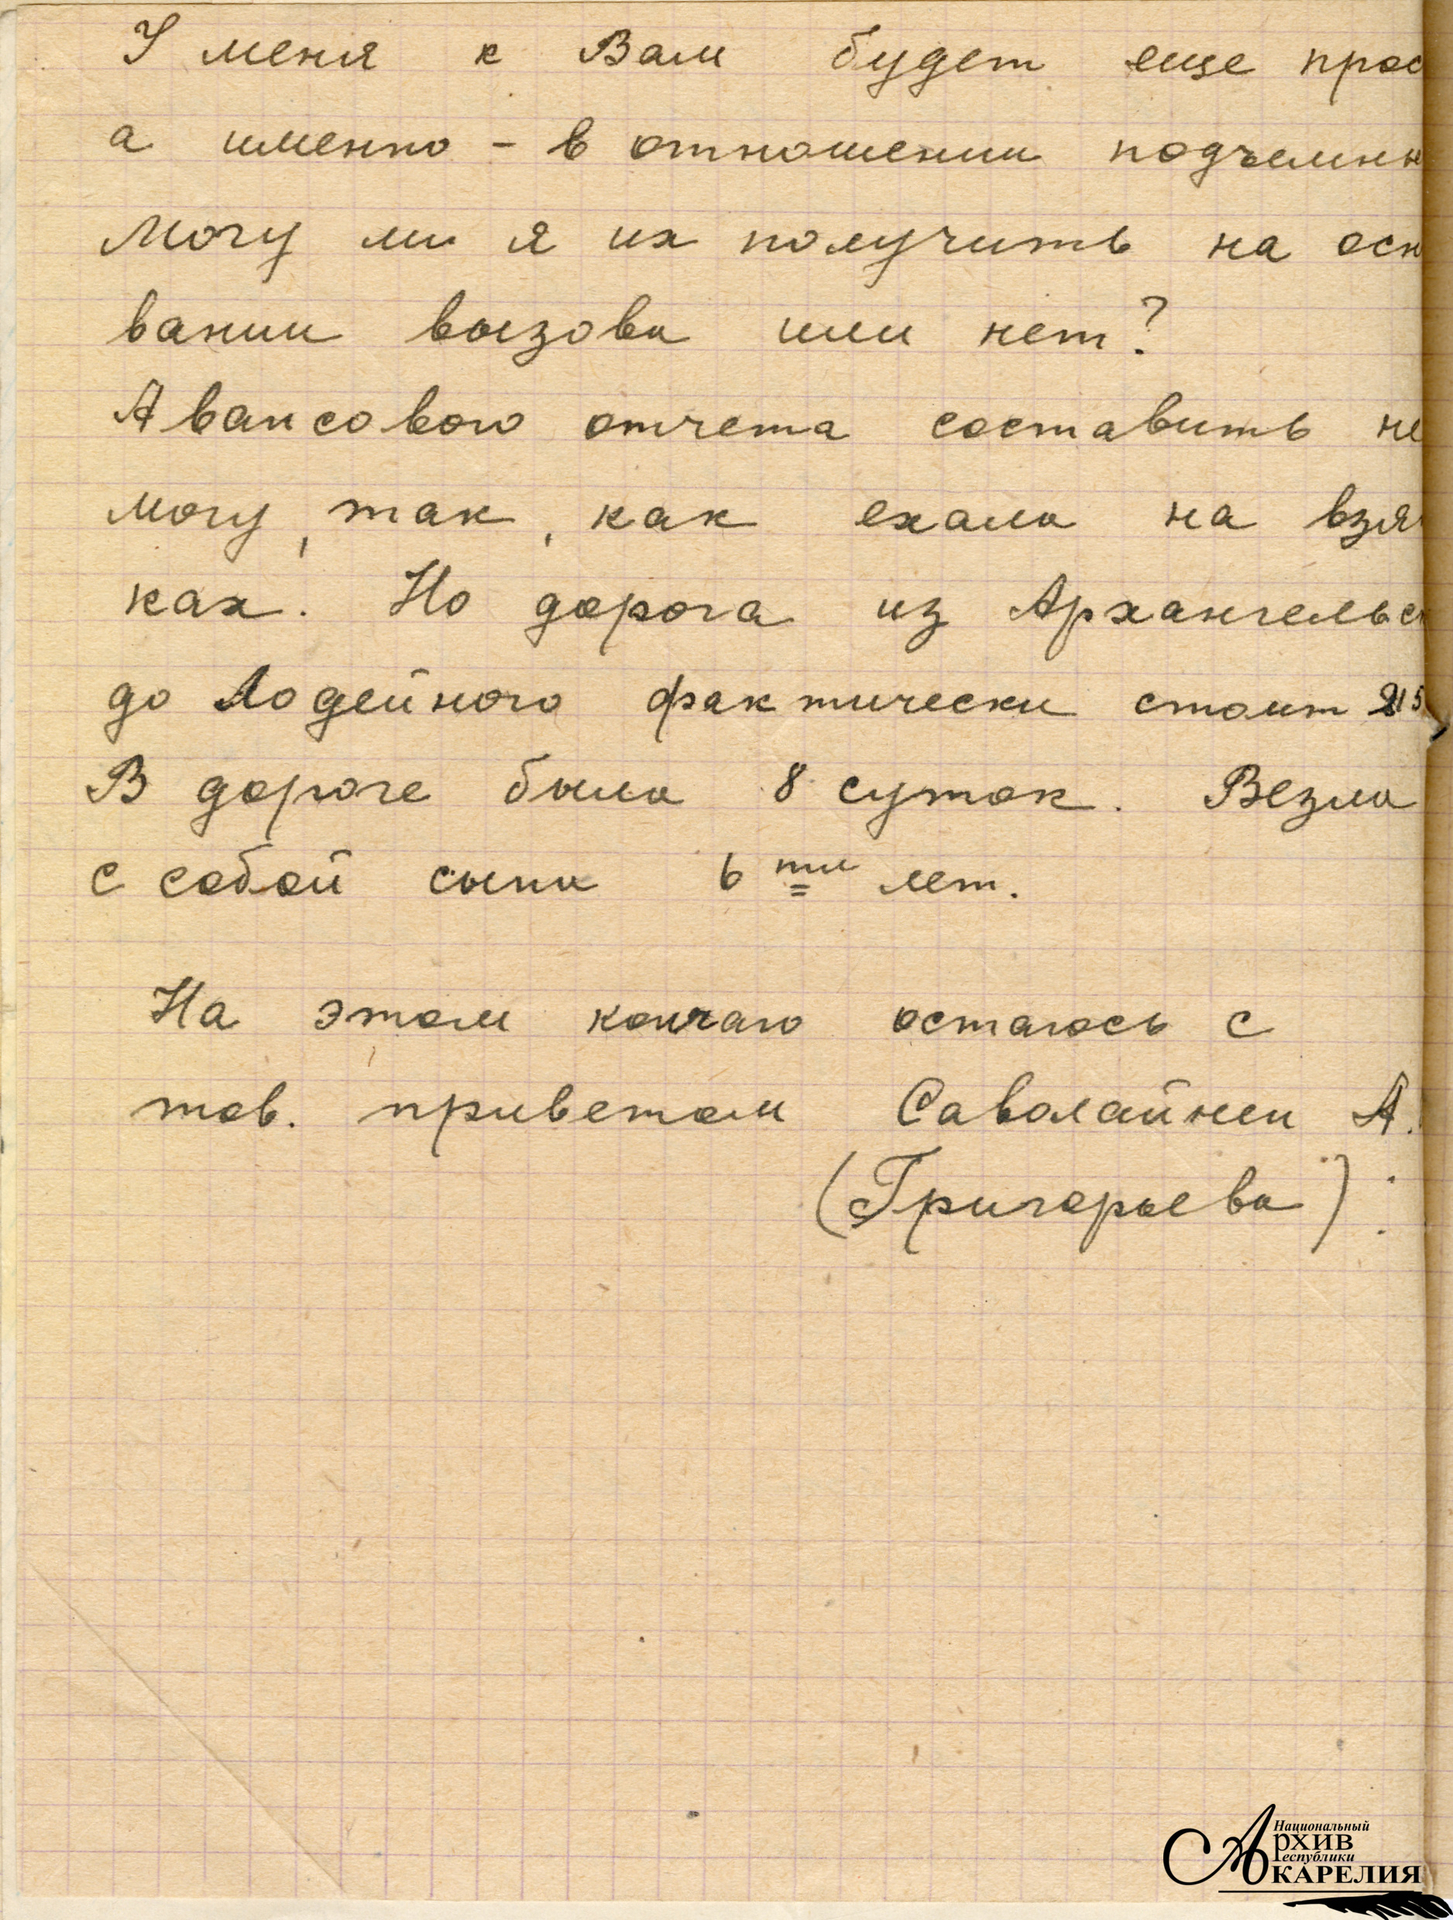 У меня к Вам будет еще прос
а именно - в отношении подъемны
Могу ли я их получить на осн
вании вызова или нет?
Авансового отчета составить не
могу, так, как ехала на взят
ках. Но дорога из Архангельс
до Лодейного фактически стоит 215
В дороге была 8 суток. Везла
с собой сына 6ти лет.
На этом кончаю остаюсь с
тов. приветом Саволайнен А.
(Григорьева)
Национальный
Архив
Республики
Карелия